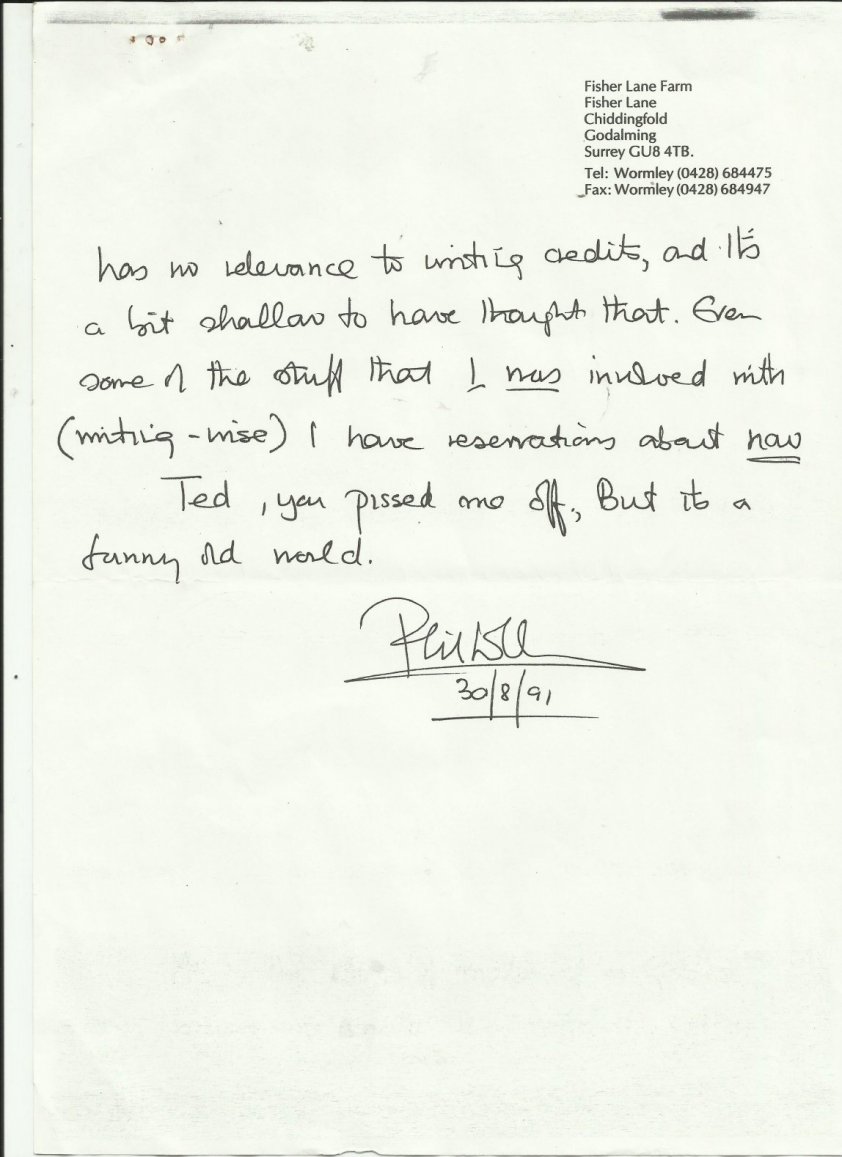 Fisher Lane Farm
Fisher Lane
Chiddingfold
Godalming
Surrey GU8 4TB.
Tel: Wormley (0428) 684475
Fax: Wormley (0428) 684947
has no relevance to writing credits, and It's
a bit shallow to have thought that. Even
some of the stuff that I was involved with
(writing-wise) I have reservations about now
Ted, you pissed me off, But its a
funny old world.
30/8/91